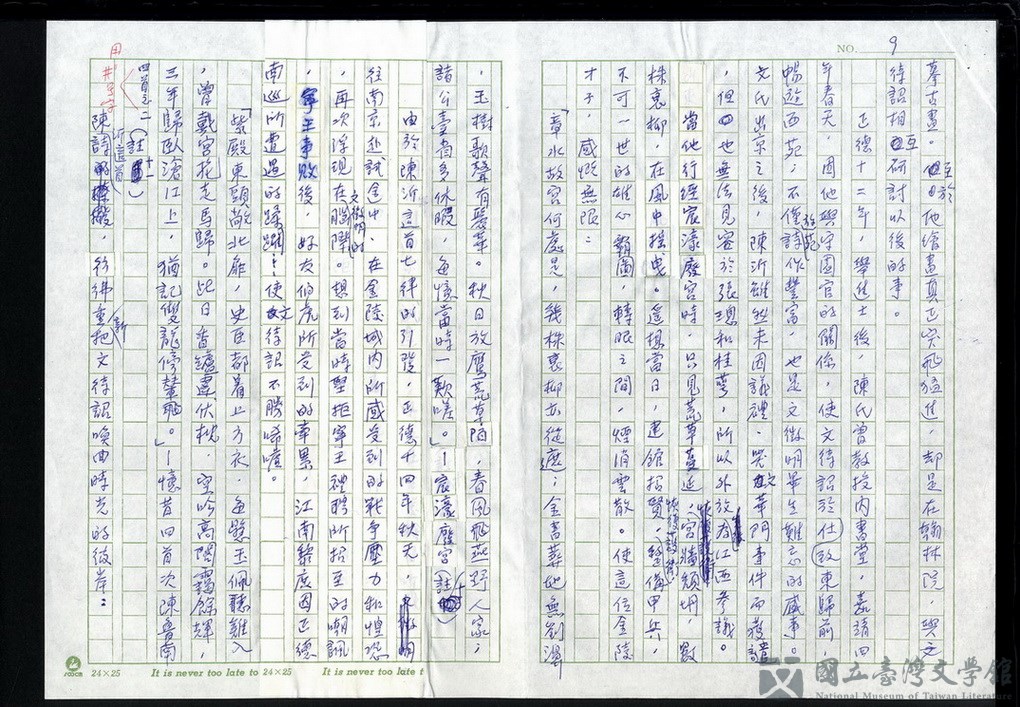 NO. 9
摹古畫。至於他繪畫真正突飛猛進，却是在翰林院，與文
待詔相互研討以後的事。
正德十二年，舉進士後，陳氏曾教授內書堂，嘉靖四
年春天，因他與守園官的關係，使文待詔於仕致東歸前，
暢遊西苑，不僅詩作豐富，也是文徵明畢生難忘的盛事。
文氏出京之後，陳沂雖然未因議禮、哭文華門事件而獲譴
，但也無法見容於張璁和桂萼，所以外放為江西參議。
當他行經宸濠廢宮時，只見荒草蔓延，宮牆頹圮，數
株衰柳，在風中搖曳。遙想當日，建館招賢，整備甲兵，
不可一世的雄心霸圖，轉眼之間，煙消雲散。使這位金陵
才子，感慨無限：
「章水故宮何處是，幾株衰柳亦從遮；金書葬地無劉濞
，玉樹歌聲有麗華。秋日放鷹荒草陌，春風飛燕野人家；
諸公臺省多休暇，每憶當時一歎嗟。」－宸濠廢宮（註十）
由於陳沂這首七律的引發，正德十四年秋天，
往南京赴試途中，在金陵城內所感受到的戰爭壓力和惶恐
，再次浮現在文徵明的腦際。想到當時堅拒寧王禮聘所招至的嘲訊
，寧王事敗後，好友伯虎所受到的牽累，江南黎庶因正德
南巡所遭遇的蹂躪…使文待詔不勝唏噓。
「紫殿東頭敞北扉，史臣都著上方衣，每懸玉佩聽雞入
，曾戴宮花走馬歸。此日香爐違伏枕，空吟高閣靄餘輝，
三年歸臥滄江上，猶記雙龍傍輦飛。」－憶昔四首次陳魯南
四首之二（註十一）
用#3字
陳沂這首詩，彷彿重新把文待詔喚回時光的彼岸：
24×25
It is never too late to
24×25
It is never too late t
國立臺灣文學館
National Museum of Taiwan Literature